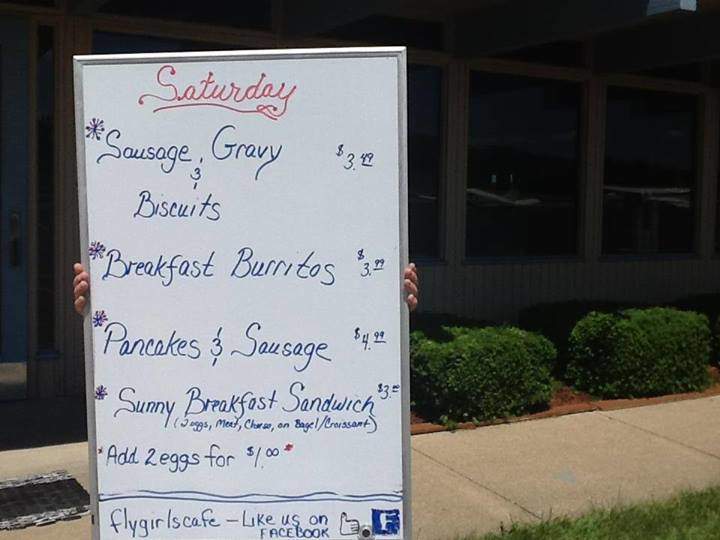 Saturday
*Sausage, Gravy $3.49
&
Biscuits
*Breakfast Burritos $3.99
*Pancakes & Sausage $4.99
*Sunny Breakfast Sandwich $3.=
(2 eggs, Meat, Cheese, on Bagel/Croissant)
*Add 2 eggs for $1.00*
flygirlscafe – Like us on
FACEBOOK
F